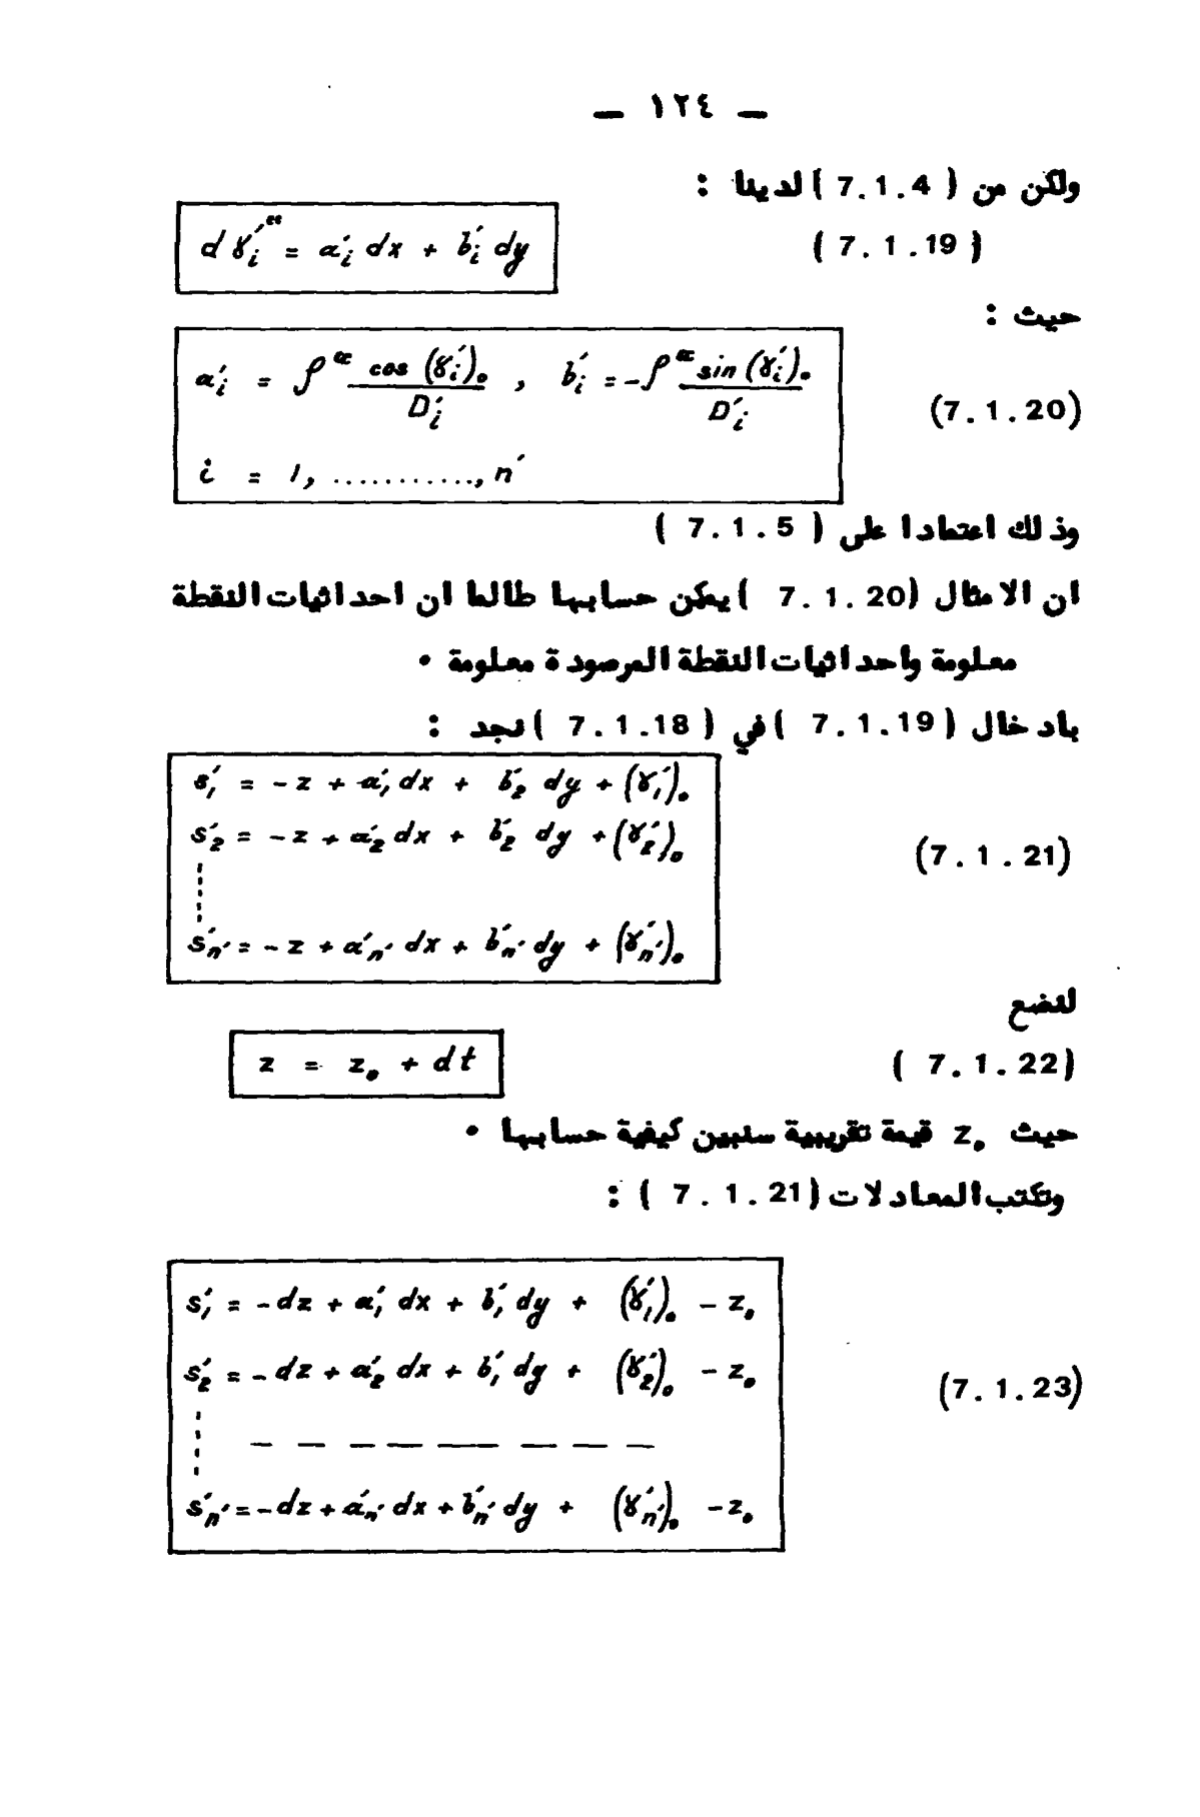 — ١٢٤ —
ولكن من ( 7.1.4 ) لدينا :
dγ′ᵢᶜᶜ = a′ᵢ dx + b′ᵢ dy ( 7.1.19 )
حيث :
a′ᵢ = ρᶜᶜ cos (γ′ᵢ)₀ / D′ᵢ , b′ᵢ = -ρᶜᶜ sin (γ′ᵢ)₀ / D′ᵢ (7.1.20)
i = 1, ..........., n′
وذلك اعتمادا على ( 7.1.5 )
ان الامثال (7.1.20 ) يمكن حسابها طالما ان احداثيات النقطة
معلومة واحداثيات النقطة المرصودة معلومة •
بادخال ( 7.1.19 ) في ( 7.1.18 ) نجد :
s′₁ = - z + a′₁ dx + b′₂ dy + (γ′₁)₀
s′₂ = - z + a′₂ dx + b′₂ dy + (γ′₂)₀ (7.1.21)
s′ₙ′ = - z + a′ₙ′ dx + b′ₙ′ dy + (γ′ₙ′)₀
لنضع
z = z₀ + dt ( 7.1.22)
حيث z₀ قيمة تقريبية سنبين كيفية حسابها •
وتكتب المعادلات (7.1.21 ) :
s′₁ = - dz + a′₁ dx + b′₁ dy + (γ′₁)₀ - z₀
s′₂ = - dz + a′₂ dx + b′₁ dy + (γ′₂)₀ - z₀ (7.1.23)
— — — — — — — —
s′ₙ′ = - dz + a′ₙ′ dx + b′ₙ′ dy + (γ′ₙ′)₀ - z₀